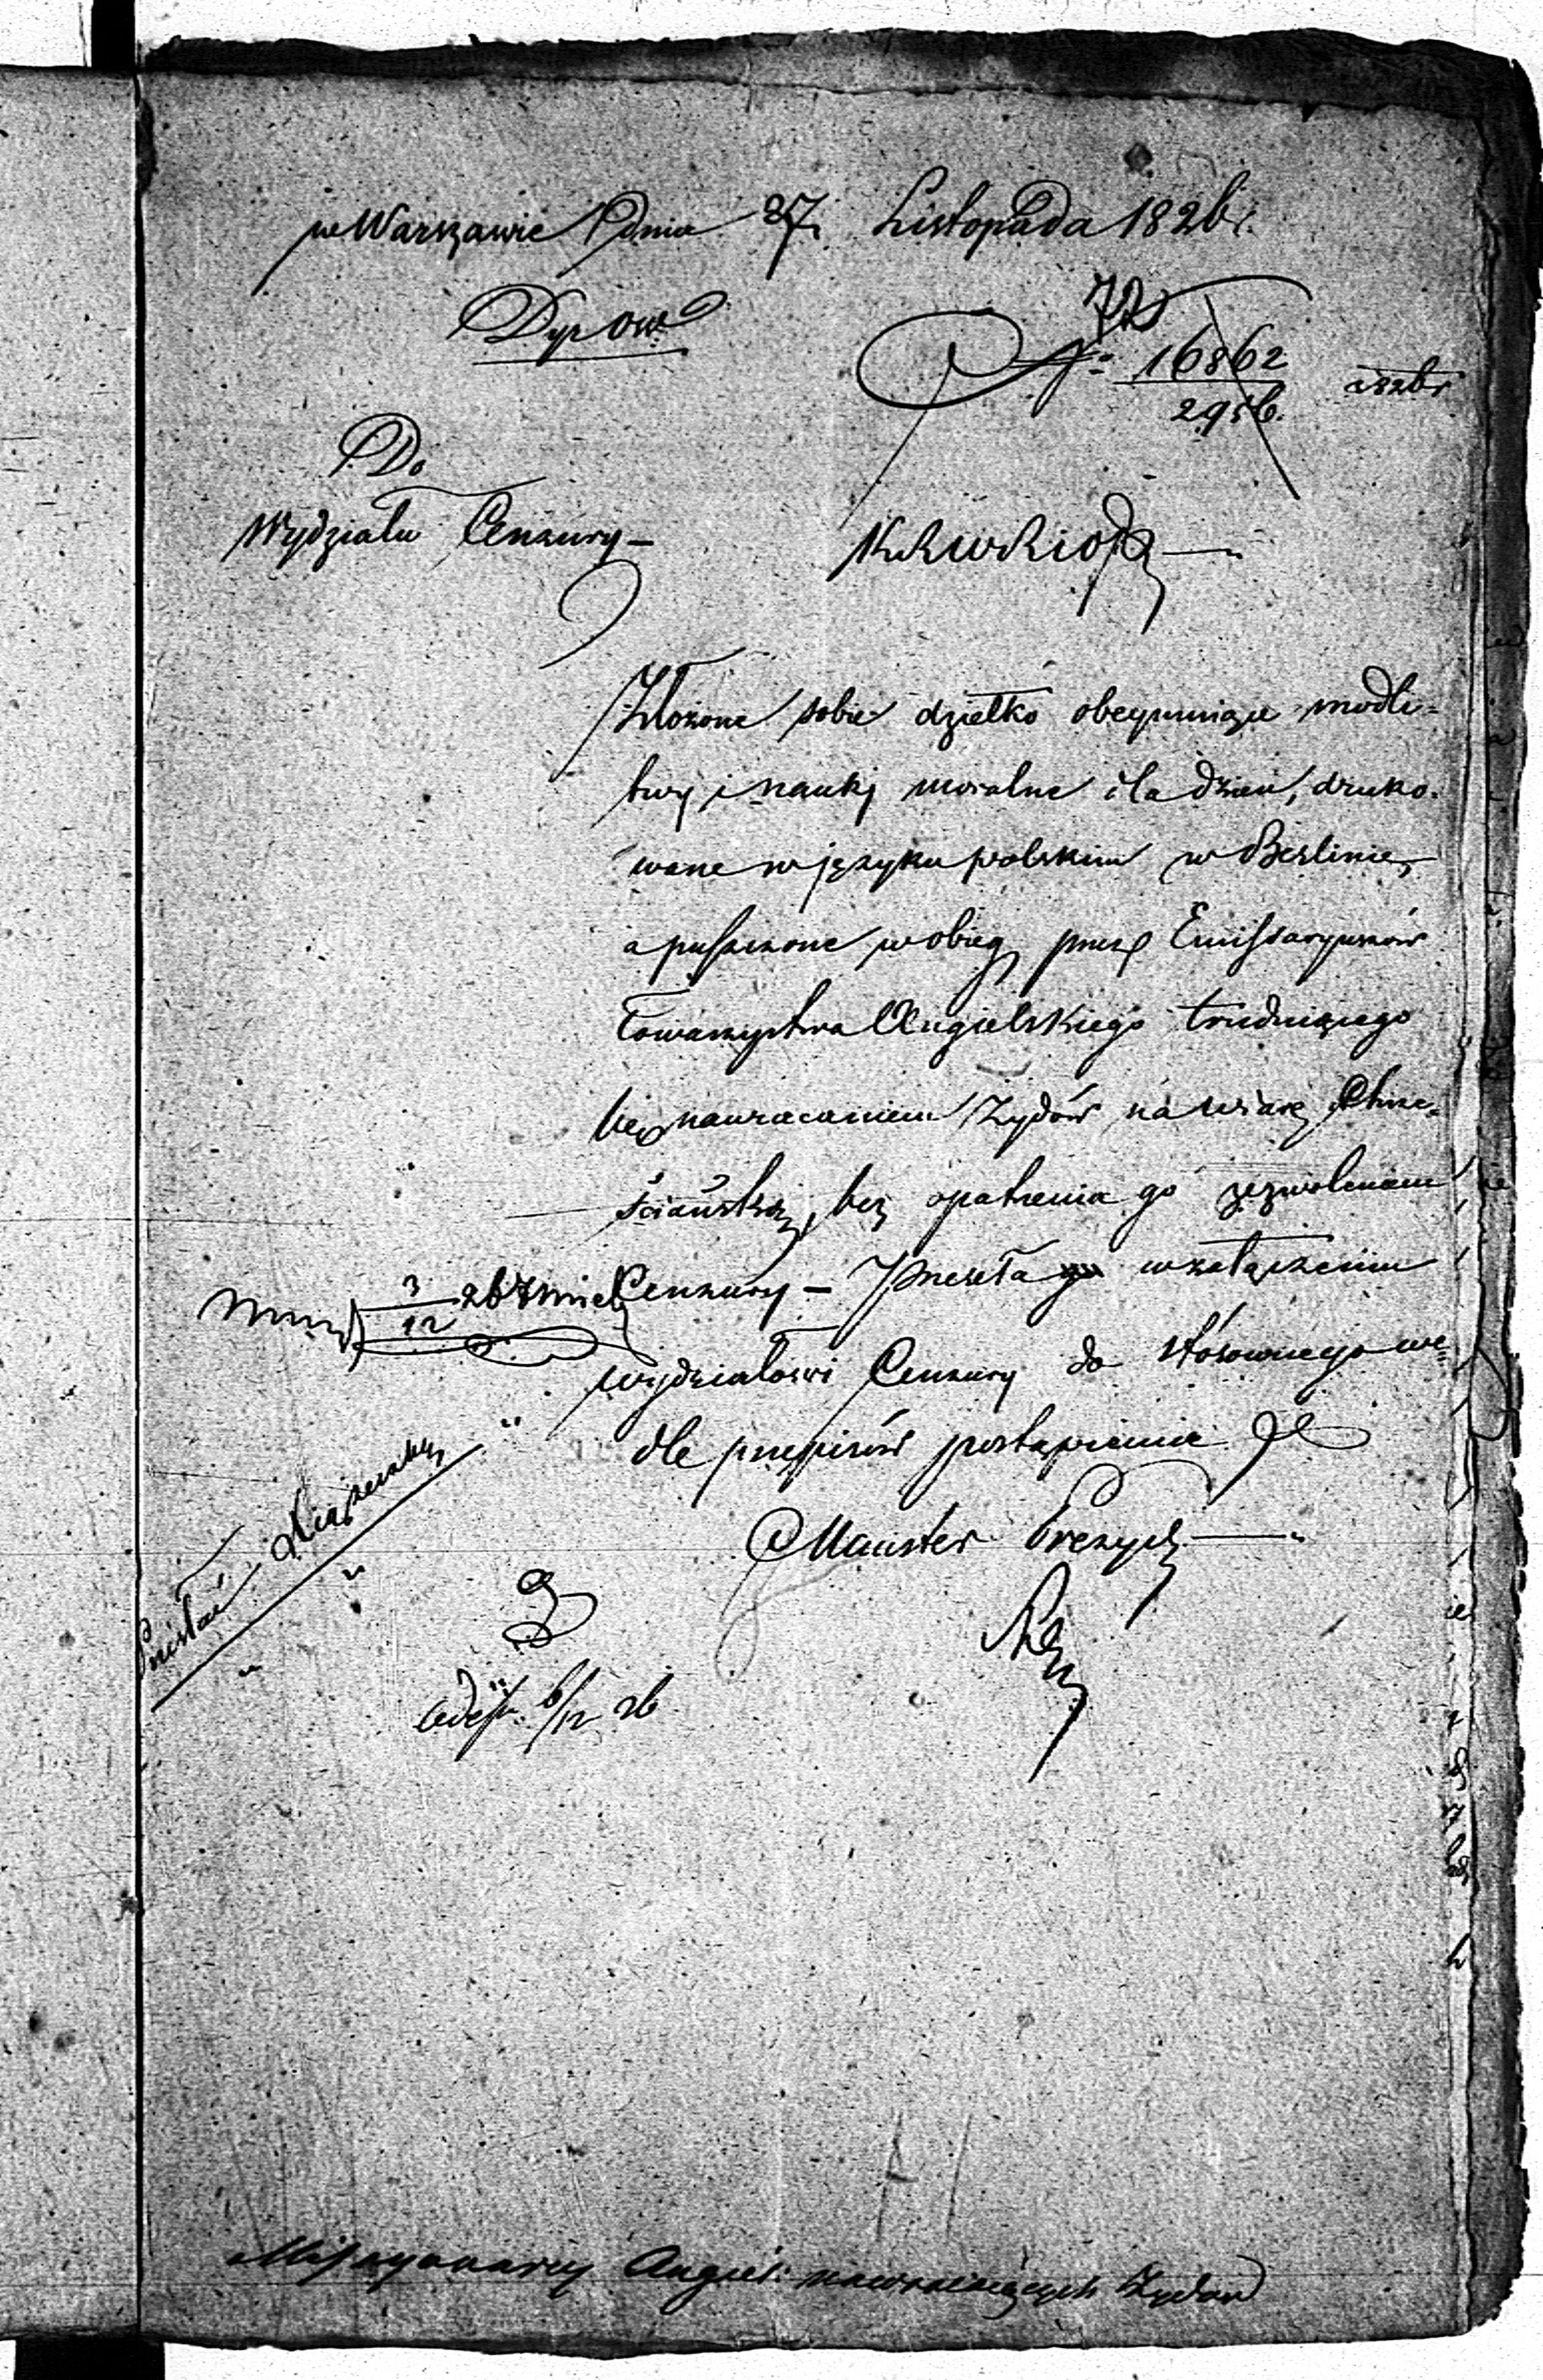 w Warszawie dnia 27 Listopada 1826 r.
Dyr. Ow.
72
No 16862 1826 r
2956.
Do
Wydziału Cenzury –
Złożone sobie dziełko obeymuiące modli=
twy i nauki moralne dla dzieci, druko-
wane w języku polskim w Berlinie,
a puszczone w obieg przez Emissaryuszów
Towarzystwa Angielskiego trudniącego
się nawracaniem Żydów na wiarę Chrze=
ściańską, bez opatrzenia go zezwoleniem
Cenzury – Przesyła w załączeniu
3
12 26
Wydziałowi Cenzury do stósownego we=
dle przepisów postąpienia
Minister Prezyd.
Przesłać Książeczkę
6/12 26
Missyonarzy Angiel: nawracaiących Żydów